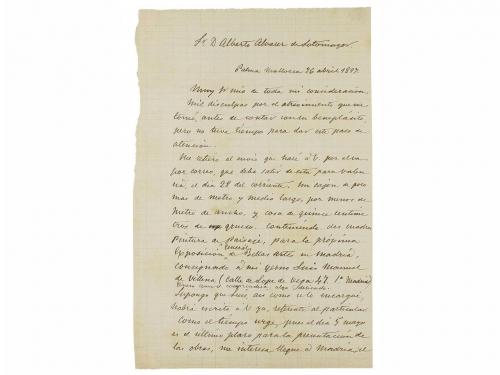 Sr. D Alberto Alvarez de Sotomayor.
Palma Mallorca 26 abril 1897.
Muy Sr mio de toda mi consideración
Mil disculpas por el atrevimiento que me
tomé, antes de contar con su beneplácito,
pero no tuve tiempo para dar este paso de
atención.
Me refiero al envío que haré á V. por el va-
por correo, que debe salir de esta para Valen-
cia, el dia 28 del corriente. Un cajon de poco
mas de metro y medio largo, por menos de
metro de ancho, y cosa de quince centíme
tros de grueso. Conteniendo dos cuadros
Pintura de paisaje, para la próxima
Exposición General de Bellas arte en Madrid,
consignado á mi yerno Luis Manuel
de Villena (Calle de Lope de Vega 47. 1º Madrid)
Supongo que Luis, asi como se lo encargué,
habrá escrito á V ya, referente al particular
Como el tiempo urge, pues el dia 5 mayo
es el ultimo plazo para la presentación de
las obras, me interesa llegue á Madrid el